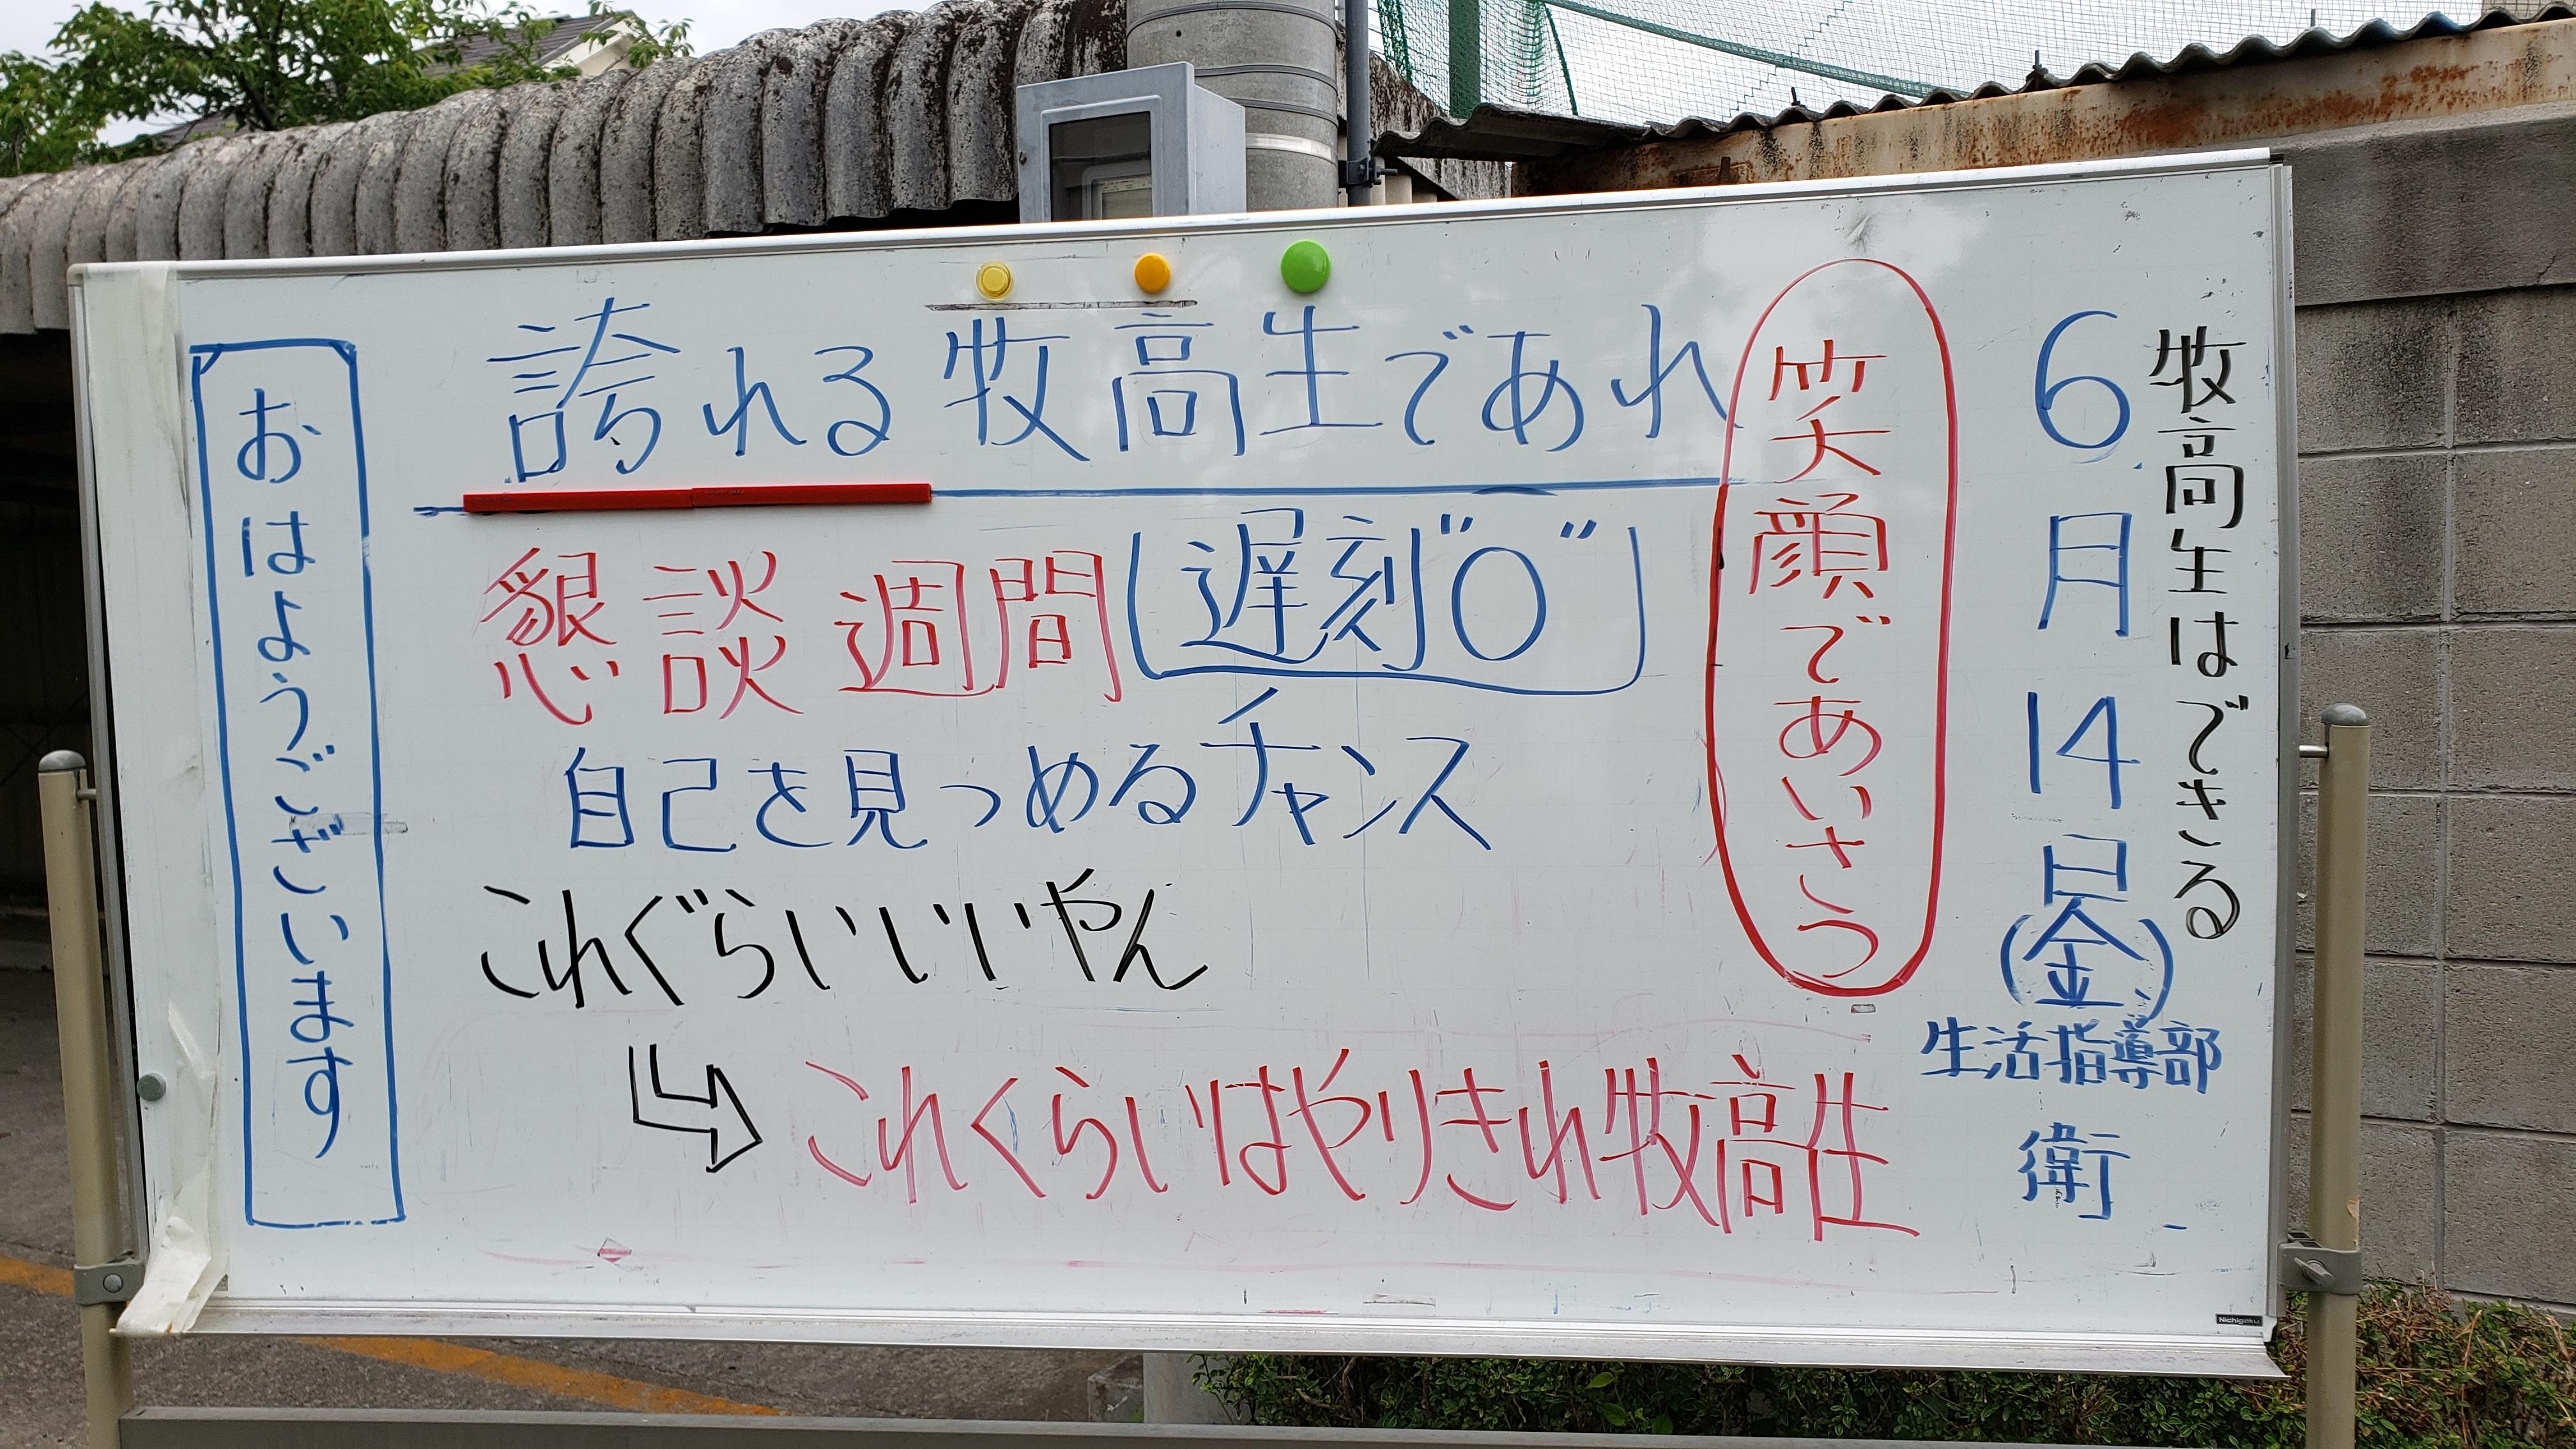 牧高生はできる
6月14日(金)
生活指導部
衛
笑顔であいさつ
誇れる牧高生であれ
懇談週間 遅刻"0"
自己を見つめるチャンス
これぐらいいいやん
これくらいはやりきれ牧高生
おはようございます
Nichigaku